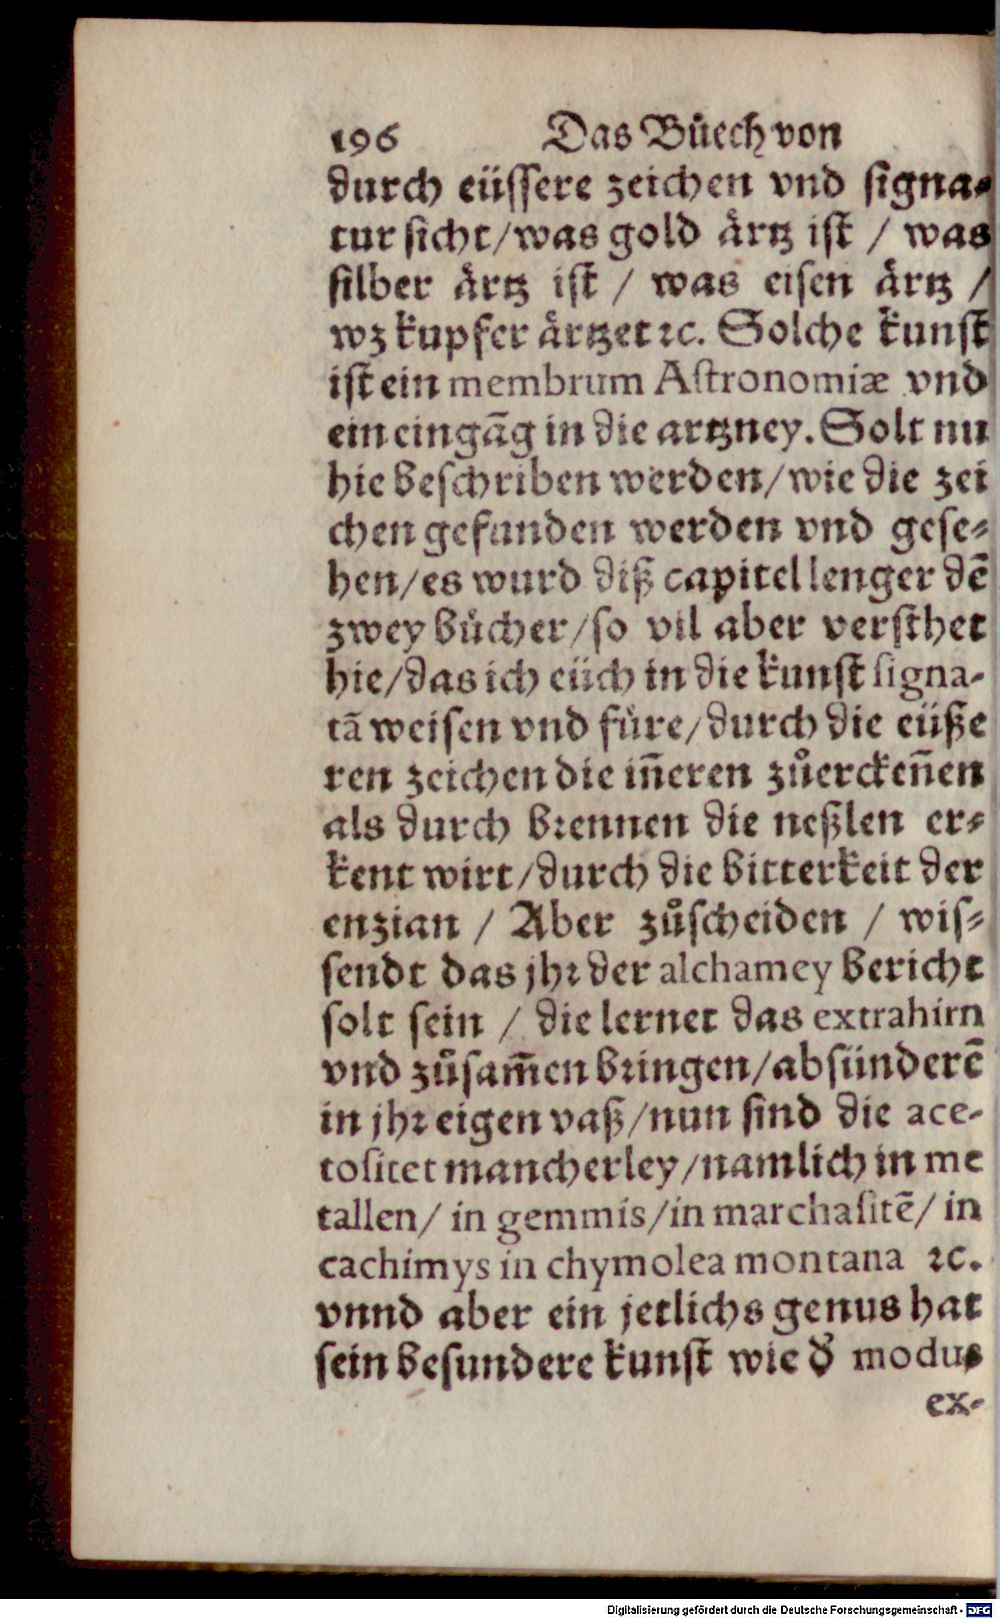 196 Das Bůech von
durch eüssere zeichen vnd signa-
tur sicht/was gold ärtz ist / was
silber ärtz ist / was eisen ärtz /
wz kupfer ärtzet ꝛc. Solche kunst
ist ein membrum Astronomiæ vnd
ein eingāg in die artzney. Solt nu
hie beschriben werden/wie die zei
chen gefunden werden vnd gese-
hen/es wurd diß capitel lenger dē
zwey bücher/so vil aber versthet
hie/das ich eüch in die kunst signa-
tā weisen vnd füre/durch die eüße
ren zeichen die iñeren zůerckeñen
als durch brennen die neßlen er-
kent wirt/durch die bitterkeit der
enzian / Aber zůscheiden / wis-
sendt das jhr der alchamey bericht
solt sein / die lernet das extrahirn
vnd zůsam̄en bringen/absünderē
in jhr eigen vaß/nun sind die ace-
tositet mancherley/namlich in me
tallen/ in gemmis/in marchasitē/ in
cachimys in chymolea montana ꝛc.
vnnd aber ein jetlichs genus hat
sein besundere kunst wieď modus
ex-
Digitalisierung gefördert durch die Deutsche Forschungsgemeinschaft - DFG